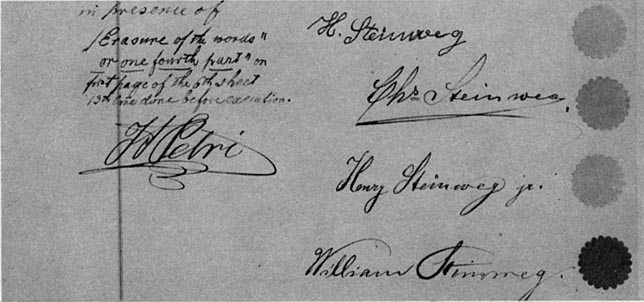 in presence of
Erasure of the words "
or one fourth part " on
first page of the 6th sheet
13th line done before execution.
Petri
H. Steinweg
Chs Steinweg.
Henry Steinweg jr.
William Steinweg.